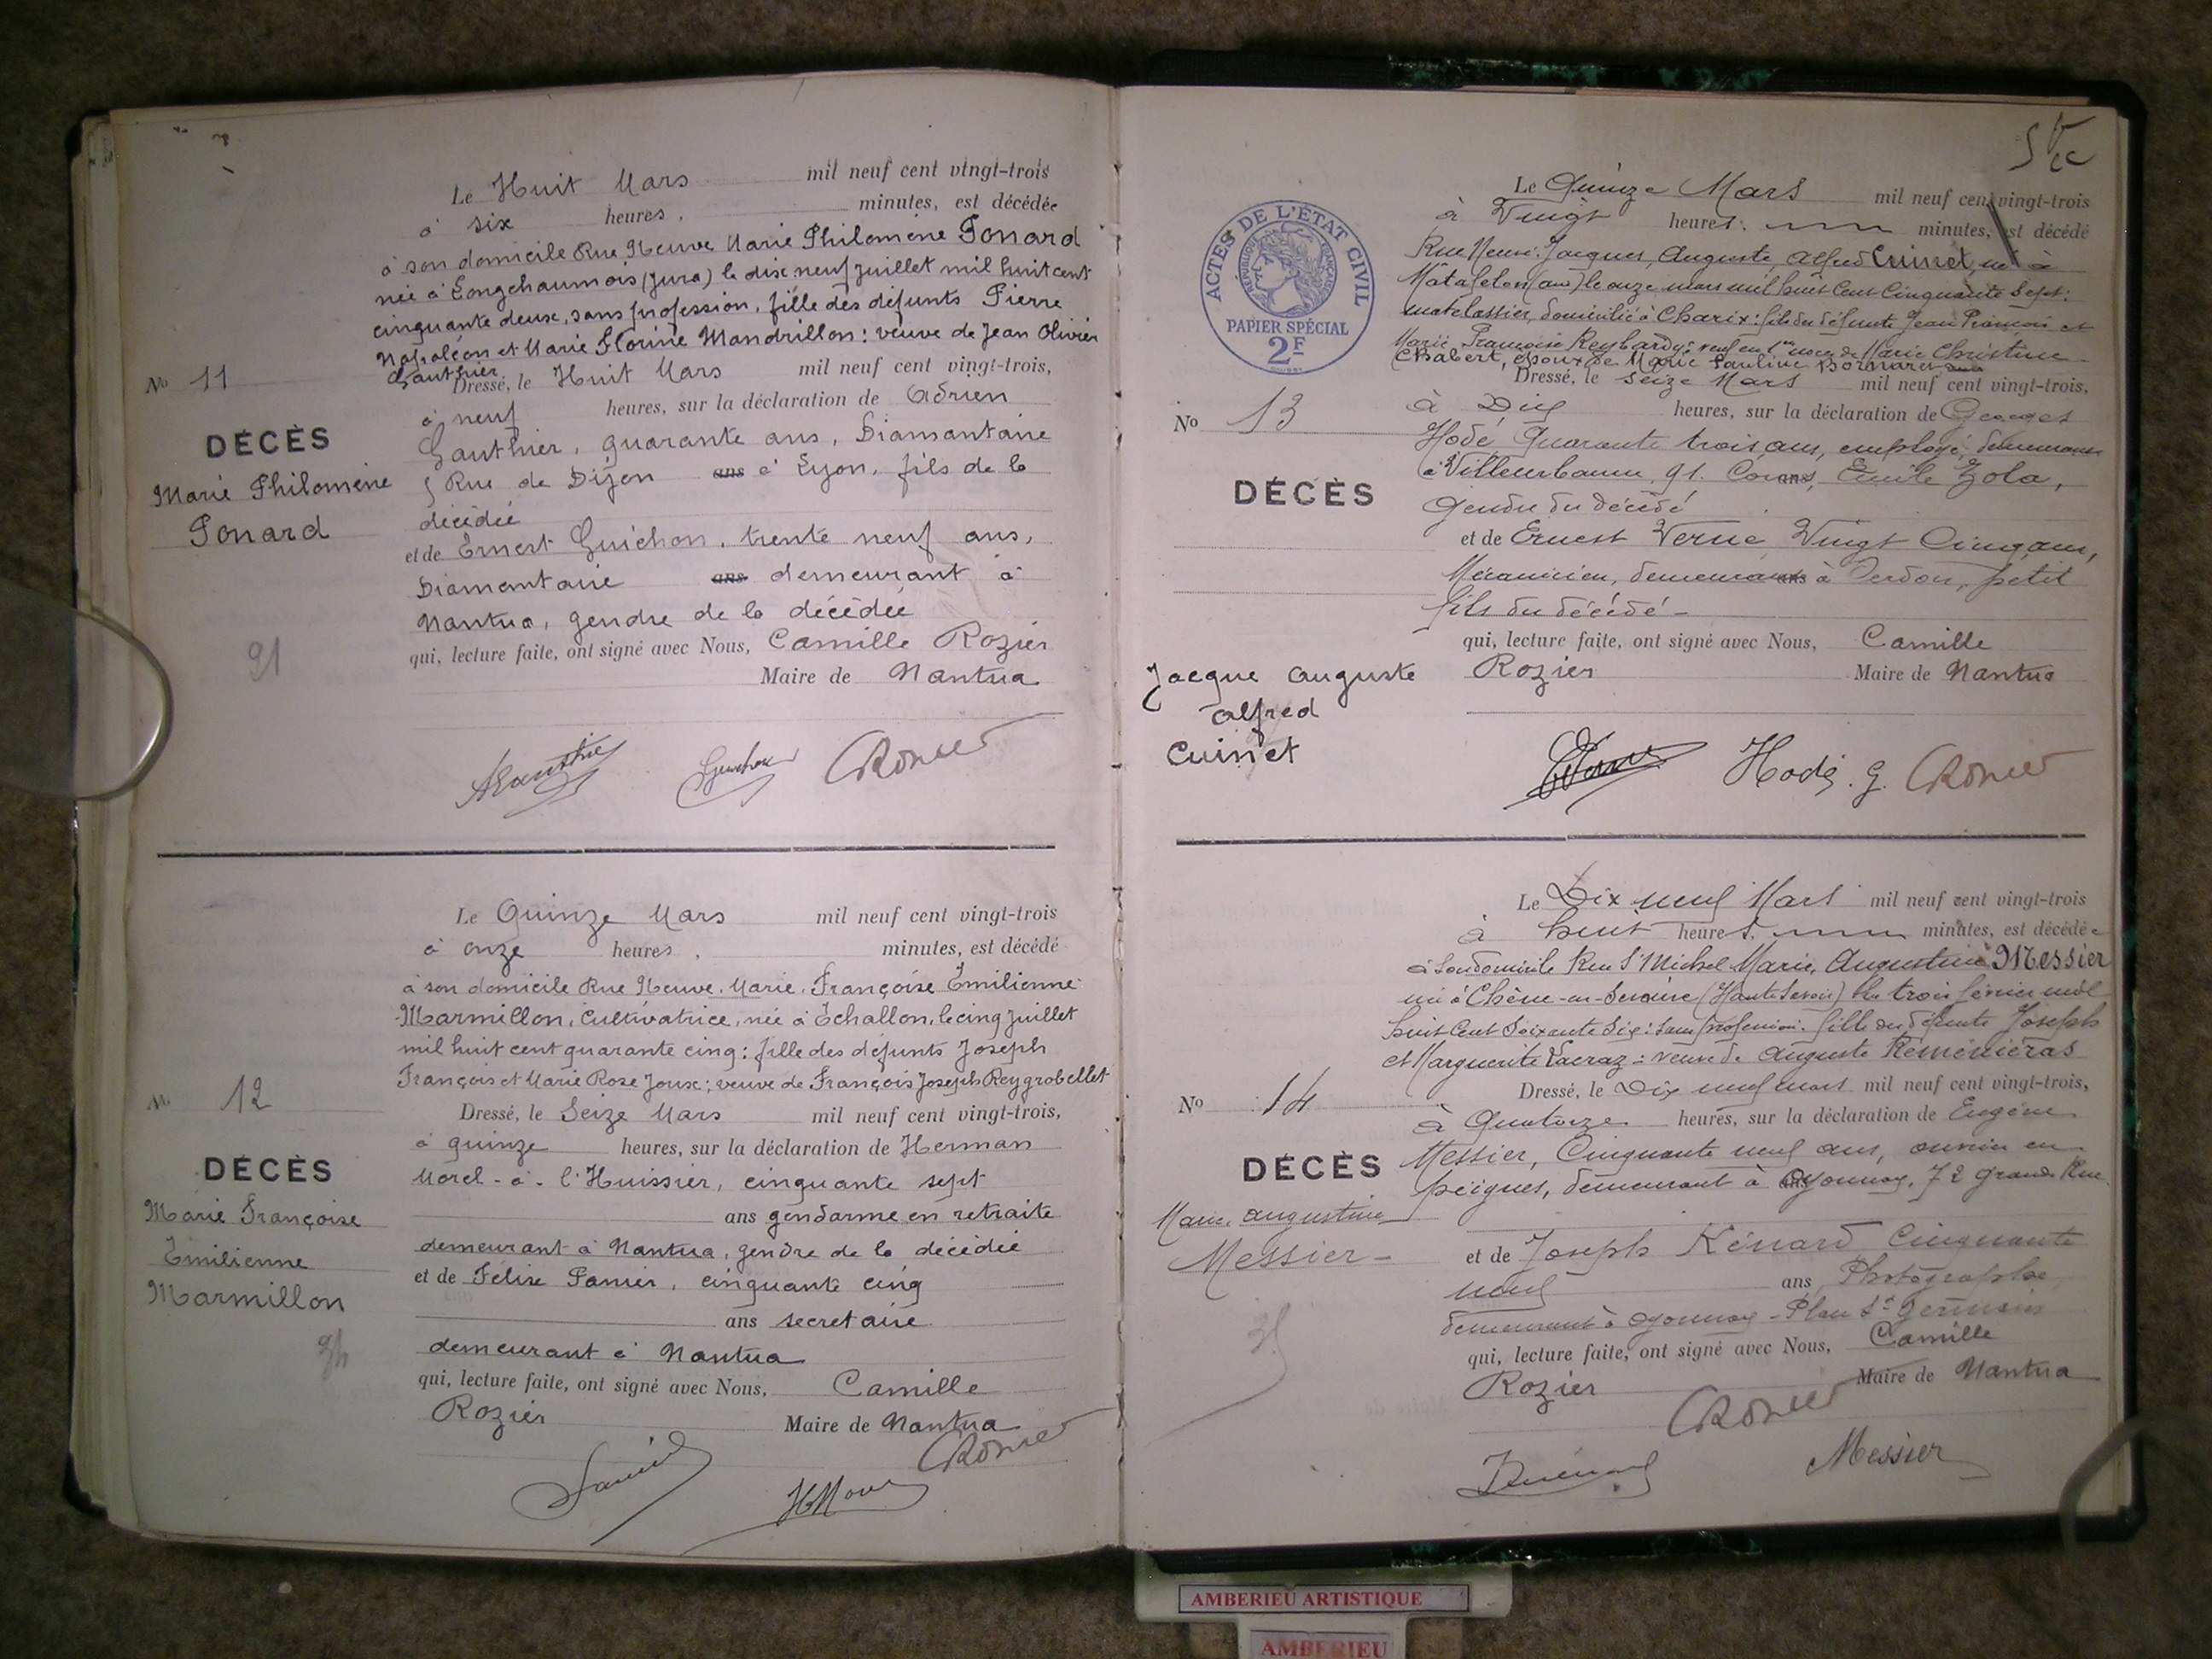 Le Huit Mars mil neuf cent vingt-trois
à six heures, minutes, est décédée
à son domicile Rue Neuve Marie Philomène Ponard
née à Longchaumois (Jura) le dix neuf juillet mil huit cent
cinquante deux, sans profession, fille des défunts Pierre
Napoléon et Marie Florine Mandrillon : veuve de Jean Olivier
Gauthier
No 11
DÉCÈS
Marie Philomène
Ponard
91
Dressé, le Huit Mars mil neuf cent vingt-trois,
à neuf heures, sur la déclaration de Adrien
Gauthier, quarante ans, Diamantaire
5 Rue de Dijon ans à Lyon, fils de la
décédée
et de Ernest Guichon, trente neuf ans,
Diamantaire ans demeurant à
Nantua, gendre de la décédée
qui, lecture faite, ont signé avec Nous, Camille Rozier
Maire de Nantua
AGauthier Guichon CRozier
Le Quinze Mars mil neuf cent vingt-trois
à onze heures, minutes, est décédé
à son domicile Rue Neuve, Marie, Françoise Emilienne
Marmillon, Cultivatrice, née à Echallon, le cinq juillet
mil huit cent quarante cinq : fille des defunts Joseph
François et Marie Rose Joux ; veuve de François Joseph Reygrobellet
No 12
DÉCÈS
Marie Françoise
Emilienne
Marmillon
Dressé, le Seize Mars mil neuf cent vingt-trois,
à quinze heures, sur la déclaration de Herman
Morel-à-l'Huissier, cinquante sept
ans gendarme en retraite
demeurant à Nantua, gendre de la décédée
et de Félix Panier, cinquante cinq
ans secretaire
demeurant à Nantua
qui, lecture faite, ont signé avec Nous, Camille
Rozier Maire de Nantua
CRozier
ACTES DE L'ÉTAT CIVIL
RÉPUBLIQUE FRANÇAISE
PAPIER SPÉCIAL
2F
Le Quinze Mars mil neuf cent vingt-trois
à Vingt heures. minutes, est décédé
Rue Neuve : Jacques, Auguste, Alfred Cuinet, né à
Matafelon (ain) le onze mars mil huit Cent Cinquante Sept :
matelassier, domicilié à Charix : fils des défunts Jean François et
Marie Françoise Reybard : veuf en 1res noces de Marie Christine
Chabert, époux de Marie Pauline
No 13
DÉCÈS
Jacque Auguste
Alfred
Cuinet
Dressé, le seize Mars mil neuf cent vingt-trois,
à Dix heures, sur la déclaration de Georges
Hodé Quarante trois ans, employé, demeurant
à Villeurbanne, 91. Cours, Emile Zola,
Gendre du décédé
et de Ernest Verne Vingt Cinq ans,
Mécanicien, demeurant à Cerdon, petit
fils du décédé -
qui, lecture faite, ont signé avec Nous, Camille
Rozier Maire de Nantua
EVerne Hodé. G. CRozier
Le Dix neuf Mars mil neuf cent vingt-trois
à huit heures. minutes, est décédée
à son domicile Rue St Michel Marie, Augustine Messier
née à Chêne-en-Semine (Haute Savoie) le trois février mil
huit Cent Soixante Six : sans profession : fille des défunts Joseph
et Marguerite Lacraz : veuve de Auguste Réménieras
No 14
DÉCÈS
Marie, Augustine
Messier -
Dressé, le Dix neuf mars mil neuf cent vingt-trois,
à Quatorze heures, sur la déclaration de Eugène
Messier, Cinquante neuf ans, ouvrier en
peignes, demeurant à Oyonnax, 72 Grande Rue
et de Joseph Rénard Cinquante
neuf ans, Photographe
demeurant à Oyonnax - Place St Germain
qui, lecture faite, ont signé avec Nous, Camille
Rozier Maire de Nantua
CRozier
Messier
AMBERIEU ARTISTIQUE
AMBERIEU